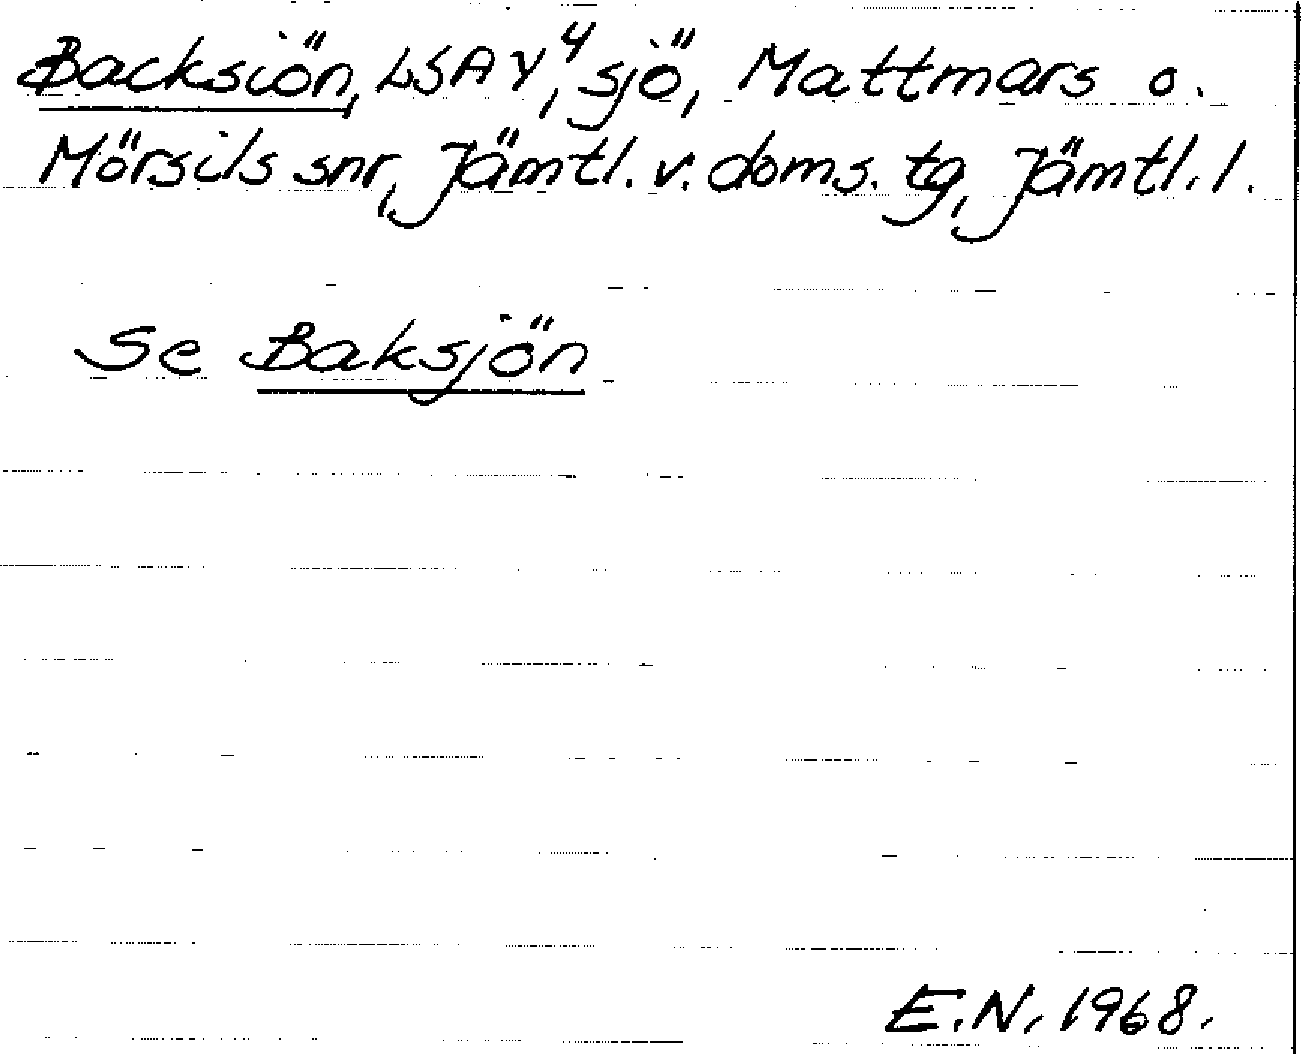 Backsiön, LSA Y⁴, sjö, Mattmars o.
Mörsils snr, Jämtl. v. doms. tg, Jämtl. l.
Se Baksjön
E.N. 1968.